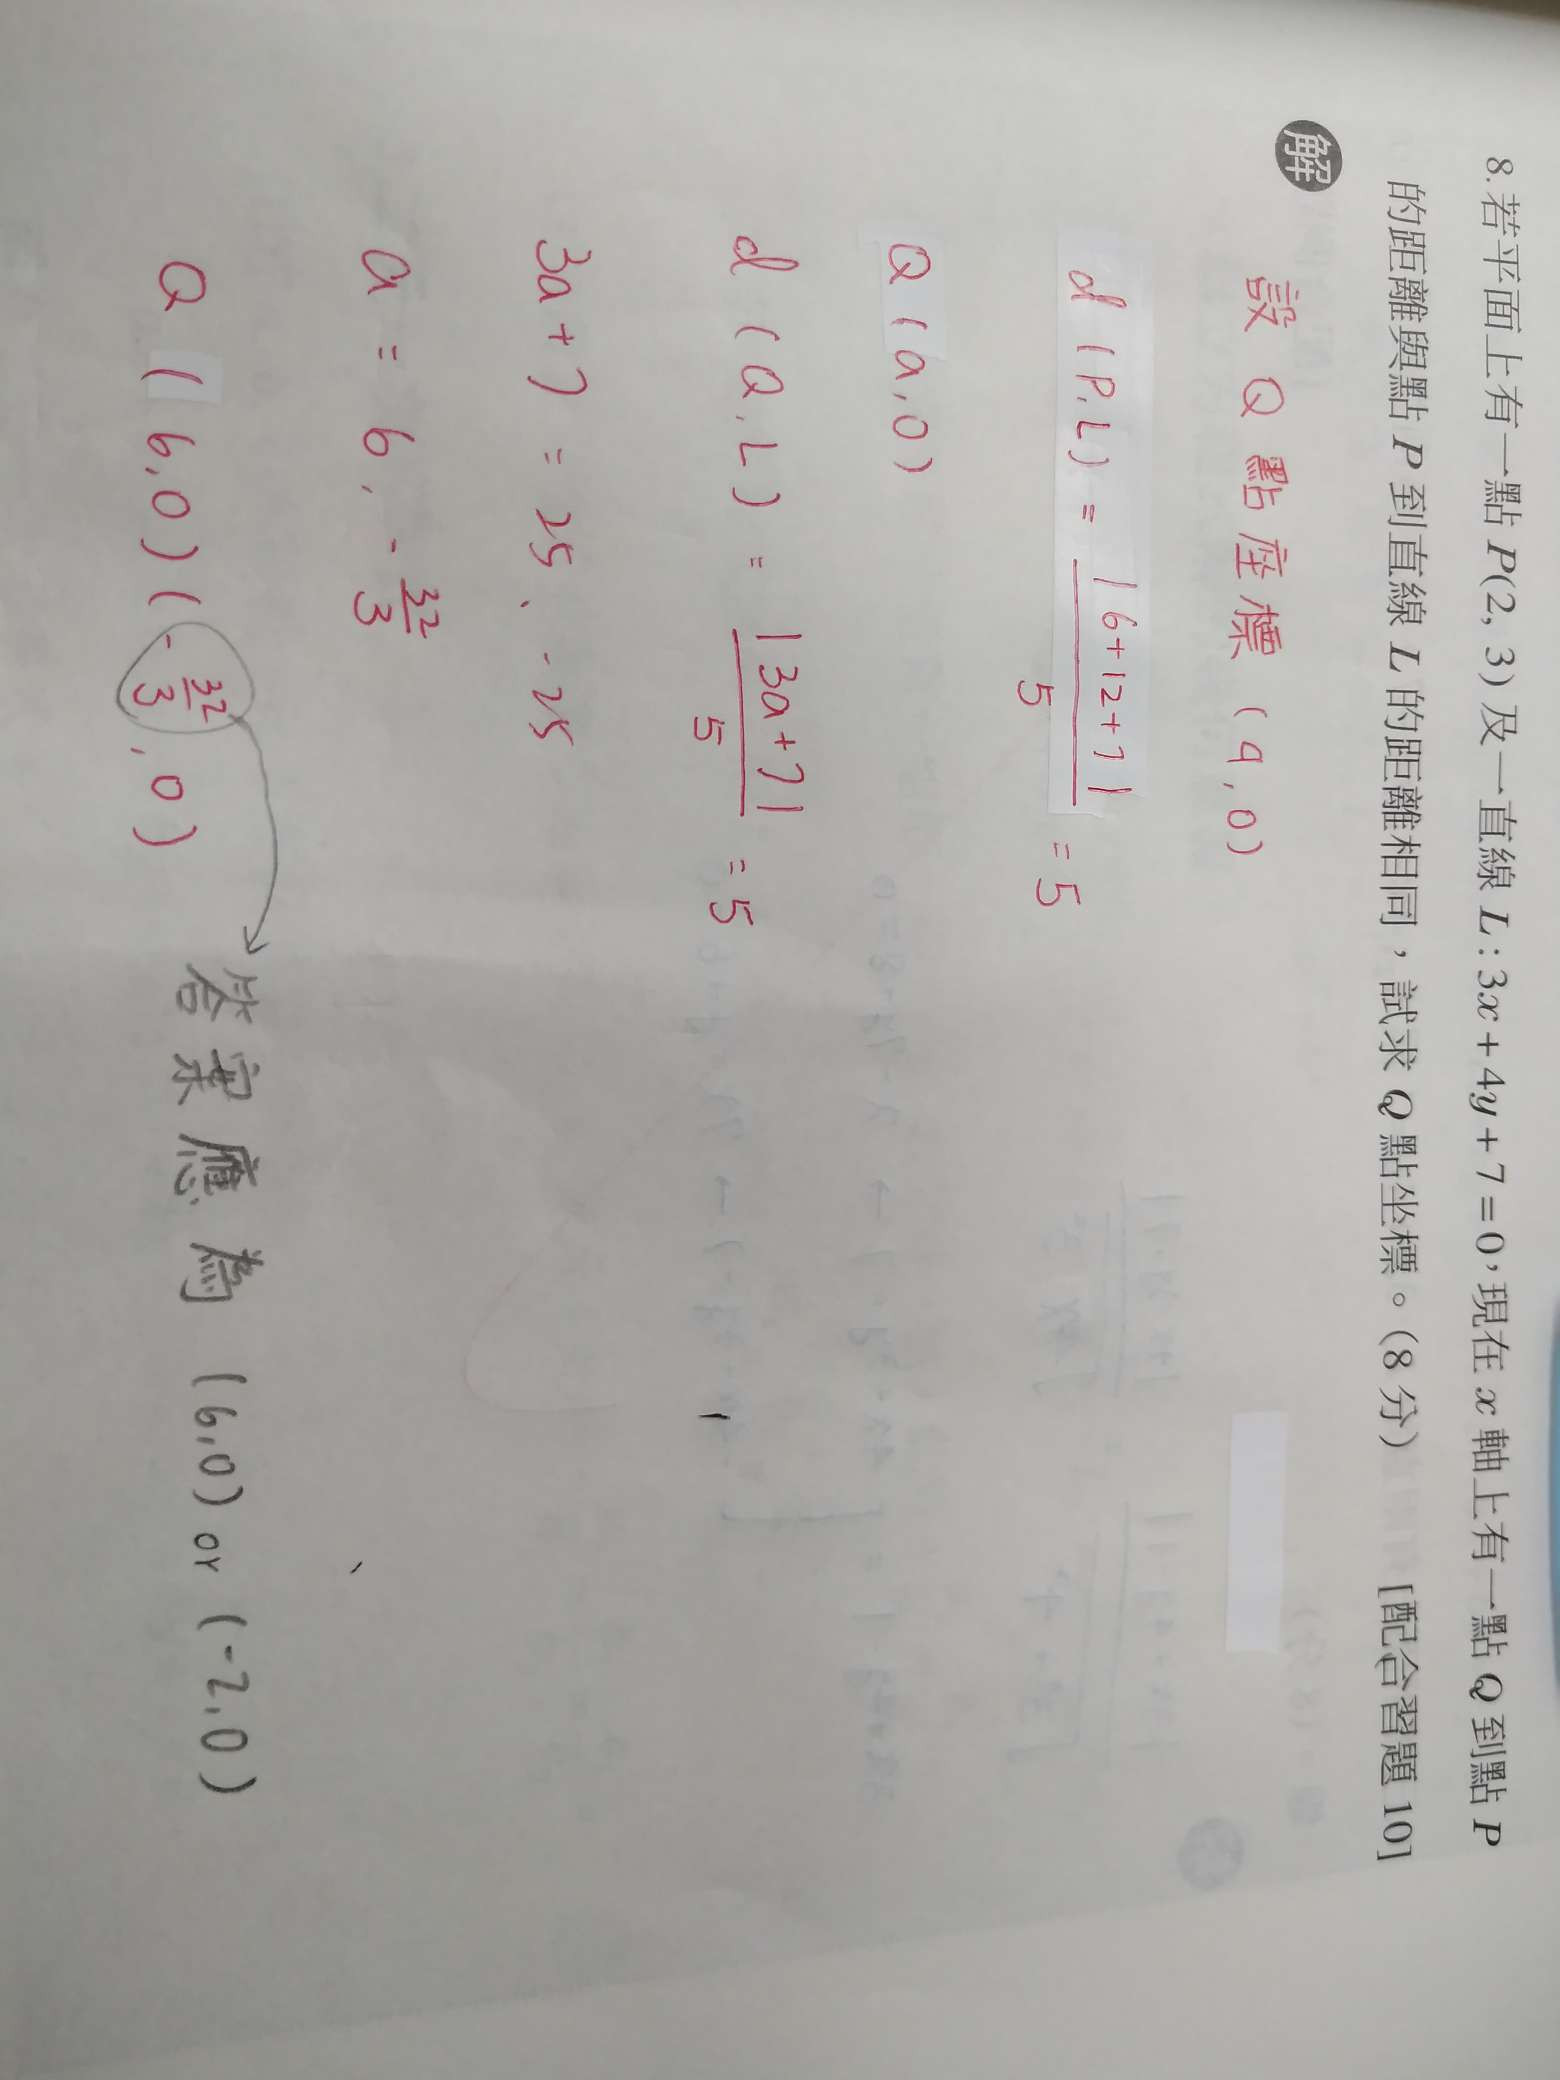 8.若平面上有一點 P(2, 3) 及一直線 L : 3x + 4y + 7 = 0，現在 x 軸上有一點 Q 到點 P
的距離與點 P 到直線 L 的距離相同，試求 Q 點坐標。(8 分) [配合習題 10]
解
設 Q 點座標 (a,0)
d (P,L) = |6+12+7| / 5 = 5
Q (a,0)
d (Q,L) = |3a+7| / 5 = 5
3a+7 = 25、-25
a = 6, -32/3
Q (6,0) (-32/3,0)
答案應為 (6,0) or (-2,0)